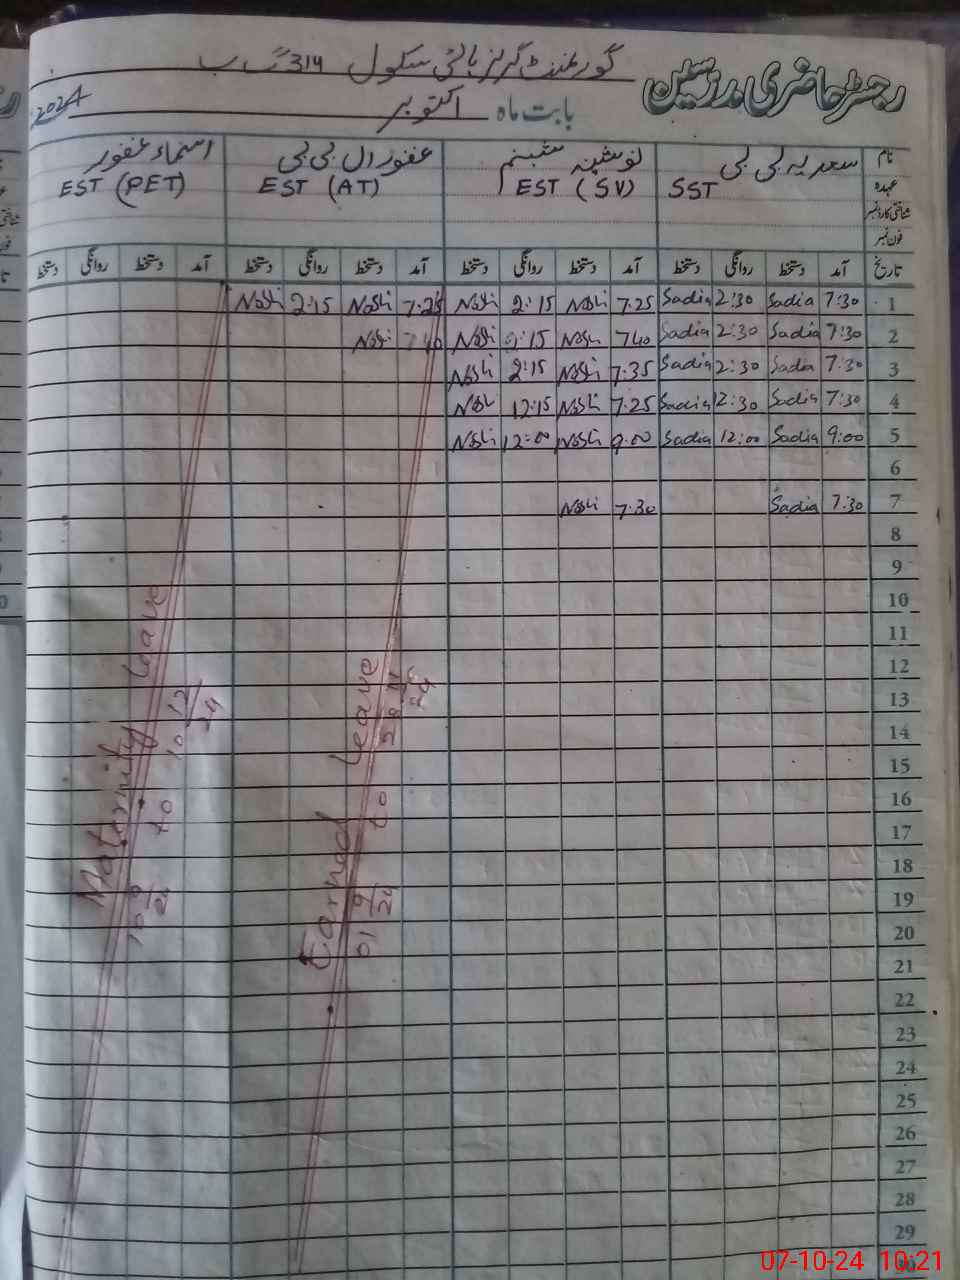 رجسٹر حاضری مدرسین
گورنمنٹ گرلز ہائی سکول 314 گ ب
بابت ماہ اکتوبر 2024
نام سعدیہ بی بی نوشینہ شبنم غفوراں بی بی اسماء غفور
عہدہ SST EST (SV) EST (AT) EST (PET)
شناختی کارڈ نمبر
فون نمبر
تاریخ آمد دستخط روانگی دستخط آمد دستخط روانگی دستخط آمد دستخط روانگی دستخط آمد دستخط روانگی دستخط
1 7:30 Sadia 2:30 Sadia 7.25 Noshi 2:15 Noshi 7.25 Noshi 2:15 Noshi
2 7:30 Sadia 2:30 Sadia 740 Nosh 2:15 Noshi 740 Noshi
3 7:30 Sadia 2:30 Sadia 7.35 Noshi 2:15 Noshi
4 7:30 Sadia 12:30 Sadia 7.25 Noshi 12:15 Nosh
5 9:00 Sadia 12:00 Sadia 9.00 Noshi 12:00 Noshi
6
7 7:30 Sadia 7.30 Noshi
8
9
10
11
12
13
14
15
16
17
18
19
20
21
22
23
24
25
26
27
28
29
30
Earned Leave
01 9/24 to 29 11/24
Maternity Leave
10 9/24 to 10 12/24
07-10-24 10:21